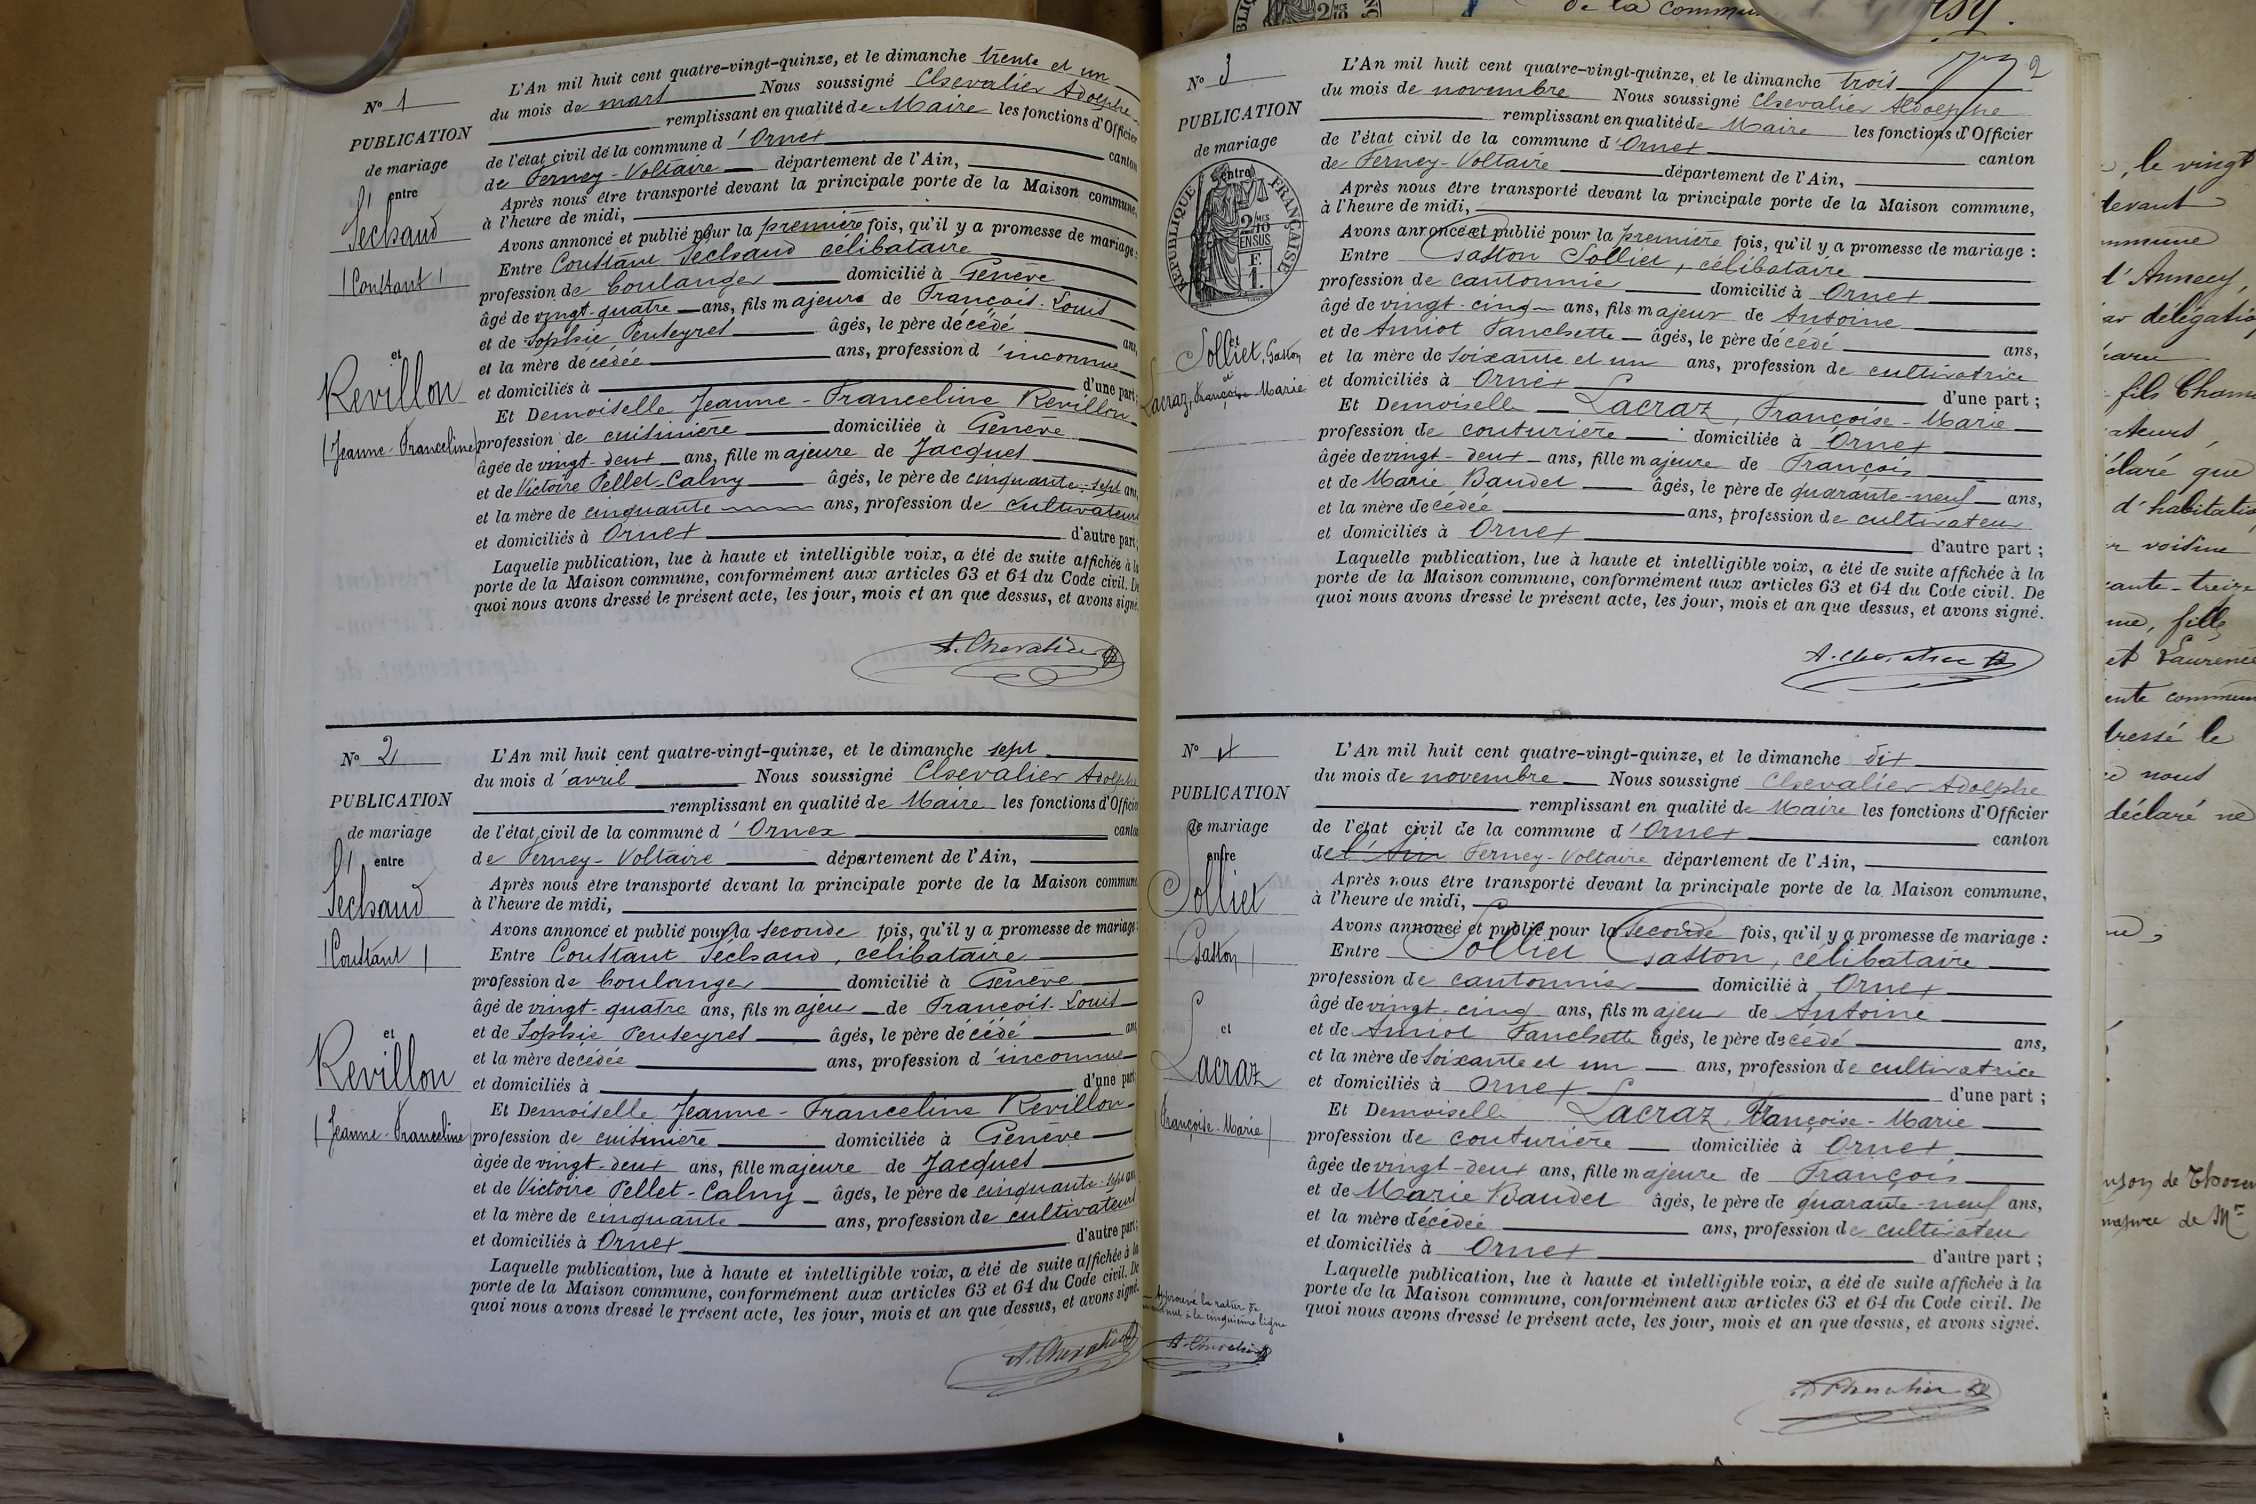 N° 1
PUBLICATION
de mariage
entre
Séchaud
(Constant)
et
Revillon
(Jeanne-Franceline)
L'An mil huit cent quatre-vingt-quinze, et le dimanche trente et un
du mois de mars Nous soussigné Chevalier Adolphe
remplissant en qualité de Maire les fonctions d'Officier
de l'état civil de la commune d'Ornex canton
de Ferney-Voltaire département de l'Ain,
Après nous être transporté devant la principale porte de la Maison commune,
à l'heure de midi,
Avons annoncé et publié pour la première fois, qu'il y a promesse de mariage :
Entre Constant Séchaud célibataire
profession de boulanger domicilié à Genève
âgé de vingt-quatre ans, fils majeur de François-Louis
et de Sophie Penseyres âgés, le père décédé ans,
et la mère décédée ans, profession d'inconnue
et domiciliés à d'une part ;
Et Demoiselle Jeanne-Franceline Revillon
profession de cuisinière domiciliée à Genève
âgée de vingt-deux ans, fille majeure de Jacques
et de Victoire Pellet-Calny âgés, le père de cinquante-sept ans,
et la mère de cinquante ans, profession de cultivateurs
et domiciliés à Ornex d'autre part ;
Laquelle publication, lue à haute et intelligible voix, a été de suite affichée à la
porte de la Maison commune, conformément aux articles 63 et 64 du Code civil. De
quoi nous avons dressé le présent acte, les jour, mois et an que dessus, et avons signé.
A. Chevalier
N° 2
PUBLICATION
de mariage
entre
Séchaud
(Constant)
et
Revillon
(Jeanne-Franceline)
L'An mil huit cent quatre-vingt-quinze, et le dimanche sept
du mois d'avril Nous soussigné Chevalier Adolphe
remplissant en qualité de Maire les fonctions d'Officier
de l'état civil de la commune d'Ornex canton
de Ferney-Voltaire département de l'Ain,
Après nous être transporté devant la principale porte de la Maison commune
à l'heure de midi,
Avons annoncé et publié pour la seconde fois, qu'il y a promesse de mariage :
Entre Constant Séchaud, célibataire
profession de boulanger domicilié à Genève
âgé de vingt-quatre ans, fils majeur de François-Louis
et de Sophie Penseyres âgés, le père décédé ans,
et la mère décédée ans, profession d'inconnue
et domiciliés à d'une part
Et Demoiselle Jeanne-Franceline Revillon
profession de cuisinière domiciliée à Genève
âgée de vingt-deux ans, fille majeure de Jacques
et de Victoire Pellet-Calny âgés, le père de cinquante-sept ans,
et la mère de cinquante ans, profession de cultivateurs
et domiciliés à Ornex d'autre part ;
Laquelle publication, lue à haute et intelligible voix, a été de suite affichée à la
porte de la Maison commune, conformément aux articles 63 et 64 du Code civil. De
quoi nous avons dressé le présent acte, les jour, mois et an que dessus, et avons signé.
A. Chevalier
2
N° 3
PUBLICATION
de mariage
entre
RÉPUBLIQUE FRANÇAISE
2/10 MES
EN SUS
F.
1.
et
Solliet, Gaston
et
Lacraz, Françoise-Marie
L'An mil huit cent quatre-vingt-quinze, et le dimanche trois
du mois de novembre Nous soussigné Chevalier Adolphe
remplissant en qualité de Maire les fonctions d'Officier
de l'état civil de la commune d'Ornex canton
de Ferney-Voltaire département de l'Ain,
Après nous être transporté devant la principale porte de la Maison commune,
à l'heure de midi,
Avons annoncé et publié pour la première fois, qu'il y a promesse de mariage :
Entre Gaston Solliet, célibataire
profession de cantonnier domicilié à Ornex
âgé de vingt-cinq ans, fils majeur de Antoine
et de Anniot Fanchette âgés, le père décédé ans,
et la mère de soixante et un ans, profession de cultivatrice
et domiciliés à Ornex d'une part ;
Et Demoiselle Lacraz, Françoise-Marie
profession de couturière domiciliée à Ornex
âgée de vingt-deux ans, fille majeure de François
et de Marie Baudet âgés, le père de quarante-neuf ans,
et la mère décédée ans, profession de cultivateur
et domiciliés à Ornex d'autre part ;
Laquelle publication, lue à haute et intelligible voix, a été de suite affichée à la
porte de la Maison commune, conformément aux articles 63 et 64 du Code civil. De
quoi nous avons dressé le présent acte, les jour, mois et an que dessus, et avons signé.
A. Chevalier
N° 4
PUBLICATION
de mariage
entre
Solliet
(Gaston)
et
Lacraz
(Françoise-Marie)
L'An mil huit cent quatre-vingt-quinze, et le dimanche dix
du mois de novembre Nous soussigné Chevalier Adolphe
remplissant en qualité de Maire les fonctions d'Officier
de l'état civil de la commune d'Ornex canton
de l'Ain Ferney-Voltaire département de l'Ain,
Après nous être transporté devant la principale porte de la Maison commune,
à l'heure de midi,
Avons annoncé et publié pour la seconde fois, qu'il y a promesse de mariage :
Entre Solliet Gaston, célibataire
profession de cantonnier domicilié à Ornex
âgé de vingt-cinq ans, fils majeur de Antoine
et de Anniot Fanchette âgés, le père décédé ans,
et la mère de soixante et un ans, profession de cultivatrice
et domiciliés à Ornex d'une part ;
Et Demoiselle Lacraz, Françoise-Marie
profession de couturière domiciliée à Ornex
âgée de vingt-deux ans, fille majeure de François
et de Marie Baudet âgés, le père de quarante-neuf ans,
et la mère décédée ans, profession de cultivateur
et domiciliés à Ornex d'autre part ;
Laquelle publication, lue à haute et intelligible voix, a été de suite affichée à la
porte de la Maison commune, conformément aux articles 63 et 64 du Code civil. De
quoi nous avons dressé le présent acte, les jour, mois et an que dessus, et avons signé.
Approuvé la rature
à la cinquième ligne
A. Chevalier
A. Chevalier
de la commune
, le vingt
devant
d'Annecy,
délégation
fils
déclaré que
d'habitation
voisine
fille
et Laurence
dressé le
nous
déclaré ne
de
majeure de Mr